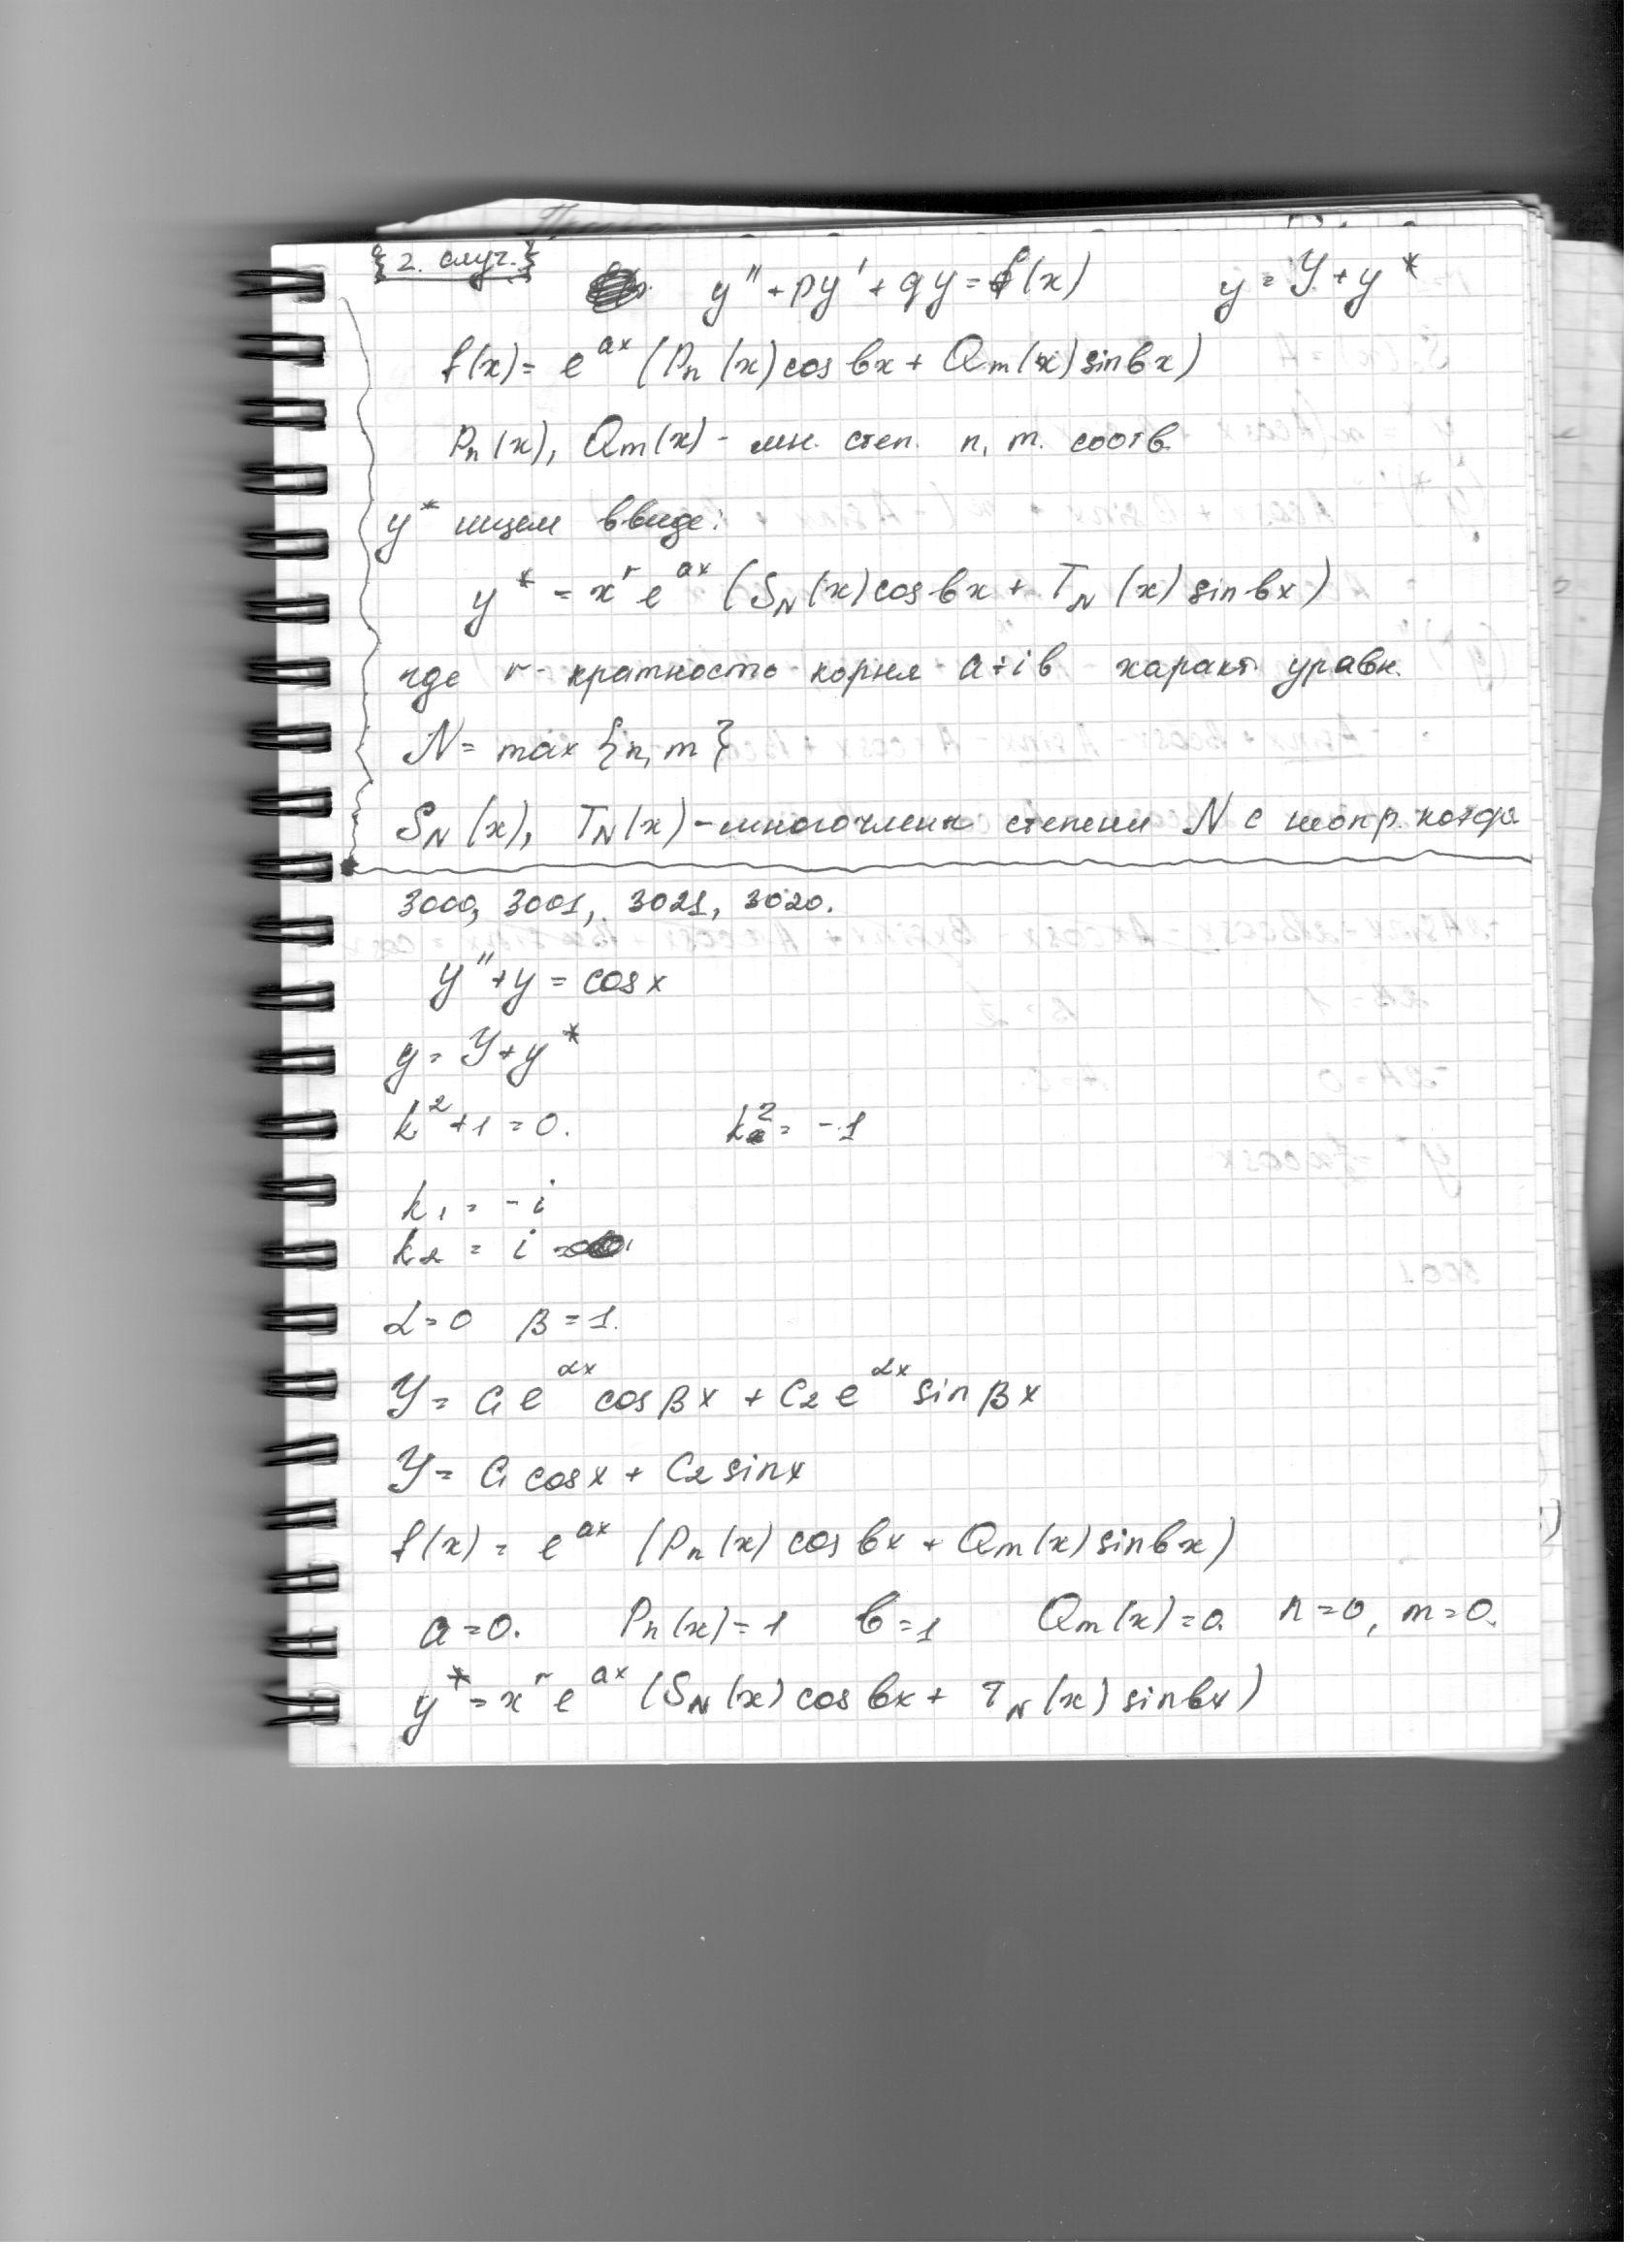 2. случ.
y'' + py' + qy = f(x) y = Y + y*
f(x) = e^{ax} (Pn(x) cos bx + Qm(x) sin bx)
Pn(x), Qm(x) - мн. степ. n, m. соотв.
y* ищем в виде:
y* = x^r e^{ax} (S_N(x) cos bx + T_N(x) sin bx)
где r - кратность корня a + ib - характ уравн.
N = max {n, m}
S_N(x), T_N(x) - многочлены степени N с
3000, 3001, 3021, 3020.
y'' + y = cos x
y = Y + y*
k^2 + 1 = 0. k^2 = -1
k1 = -i
k2 = i
α = 0 β = 1.
Y = C1 e^{αx} cos βx + C2 e^{αx} sin βx
Y = C1 cos x + C2 sin x
f(x) = e^{ax} (Pn(x) cos bx + Qm(x) sin bx)
a = 0. Pn(x) = 1 b = 1 Qm(x) = 0. n = 0, m = 0.
y* = x^r e^{ax} (S_N(x) cos bx + T_N(x) sin bx)